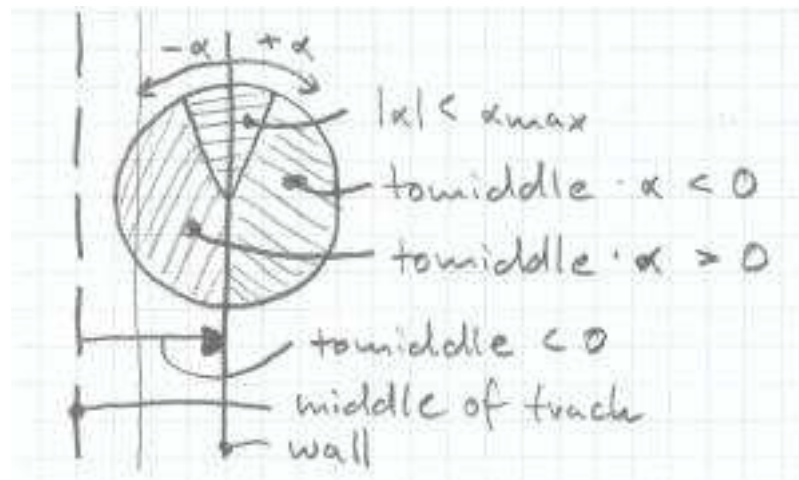 -α +α
|α| < αmax
tomiddle · α < 0
tomiddle · α > 0
tomiddle < 0
middle of track
wall